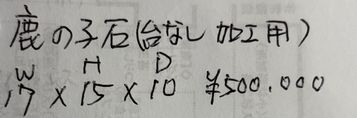 鹿の子石(台なし加工用)
W H D
17 × 15 × 10 ¥500.000